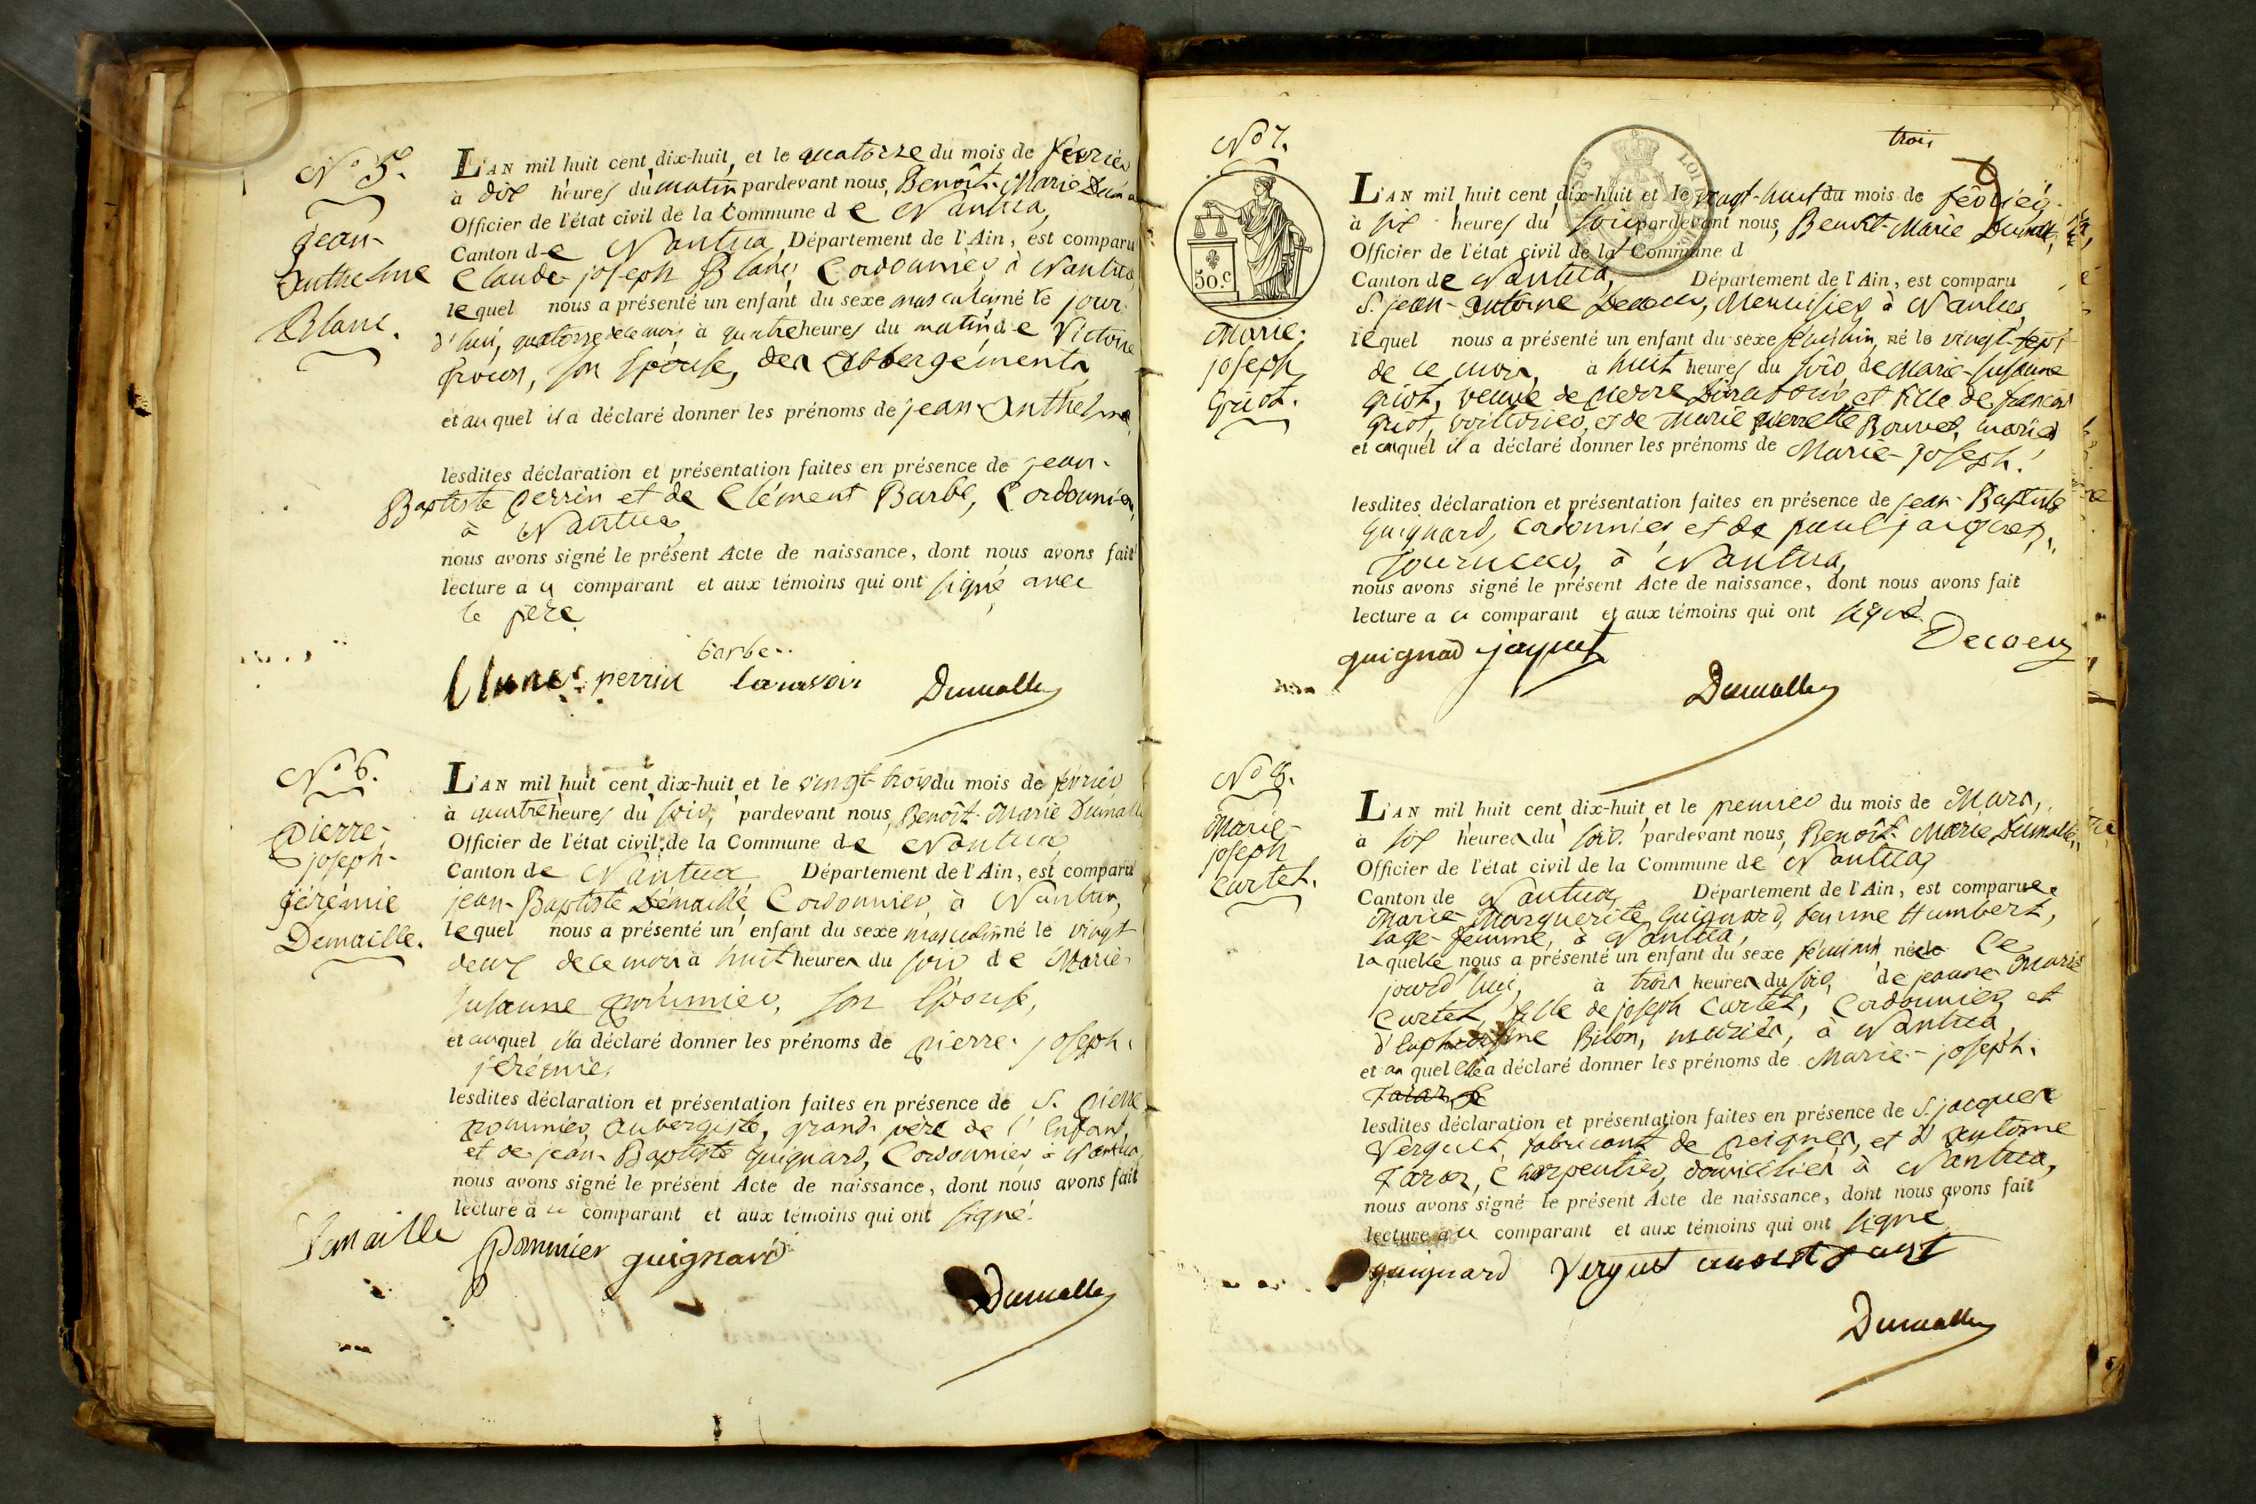 N.o 5.
Jean-
Anthelme
Blanc.
L'AN mil huit cent dix-huit, et le quatorze du mois de février
à dix heures du matin pardevant nous, Benoît-Marie
Officier de l'état civil de la Commune de Nantua,
Canton de Nantua, Département de l'Ain, est comparu
Claude-joseph Blanc, Cordonnier à Nantua,
lequel nous a présenté un enfant du sexe masculin né le jour
d'hui, quatorze de ce mois, à quatre heures du matin, de Victoire
son Epouse, des Abbergements
et auquel il a déclaré donner les prénoms de jean-Anthelme,
lesdites déclaration et présentation faites en présence de jean-
Baptiste perrin et de Clément Barbe, Cordonniers,
à Nantua,
nous avons signé le présent Acte de naissance, dont nous avons fait
lecture au comparant et aux témoins qui ont signé avec
le père.
barbe
perrin Dumalle
N.o 6.
Pierre-
joseph-
jérémie
Demaille.
L'AN mil huit cent dix-huit, et le vingt-trois du mois de février
à quatre heures du soir, pardevant nous, Benoît-Marie Dumalle
Officier de l'état civil de la Commune de Nantua
Canton de Nantua Département de l'Ain, est comparu
jean-Baptiste Démaillé, Cordonnier, à Nantua,
lequel nous a présenté un enfant du sexe masculin né le vingt
deux de ce mois à huit heures du soir de Marie-
Susanne pommier, son Epouse,
et auquel il a déclaré donner les prénoms de pierre-joseph-
jérémie,
lesdites déclaration et présentation faites en présence de S. pierre
pommier, Aubergiste, grand-père de l'Enfant,
et de jean-Baptiste guignard, Cordonnier à Nantua,
nous avons signé le présent Acte de naissance, dont nous avons fait
lecture au comparant et aux témoins qui ont signé.
Demaille pommier guignard
Dumalle
trois
N.o 7.
50.c
Marie-
joseph
Griot.
L'AN mil huit cent dix-huit et le vingt-huit du mois de février,
à six heures du soir pardevant nous, Benoît-Marie Dumalle,
Officier de l'état civil de la Commune d
Canton de Nantua, Département de l'Ain, est comparu
S. jean-Antoine Decoeur, Menuisier à Nantua,
lequel nous a présenté un enfant du sexe féminin, né le vingt-sept
de ce mois, à huit heures du soir de Marie-Susanne
griot, veuve de pierre et fille de françois
griot, voiturier, et de Marie pierrette Bonnet, mariés
et auquel il a déclaré donner les prénoms de Marie-joseph.
lesdites déclaration et présentation faites en présence de jean-Baptiste
Guignard, Cordonnier, et de paul jacquet,
Tourneur, à Nantua,
nous avons signé le présent Acte de naissance, dont nous avons fait
lecture au comparant et aux témoins qui ont signé.
guignard jaquet Decoeur
Dumalle
N.o 8.
Marie-
joseph
Curtet.
L'AN mil huit cent dix-huit, et le premier du mois de Mars,
à six heures du soir pardevant nous, Benoît-Marie Dumalle,
Officier de l'état civil de la Commune de Nantua,
Canton de Nantua, Département de l'Ain, est comparue
Marie-Marguerite Guignard, femme Humbert,
sage-femme, à Nantua,
laquelle nous a présenté un enfant du sexe féminin, né le ce
jourd'hui, à trois heures du soir, de jeanne Marie
Curtet, fille de joseph Curtet, Cordonnier, et
d'Euphrosine Bilon, mariés, à Nantua,
et auquel elle a déclaré donner les prénoms de Marie-joseph.
lesdites déclaration et présentation faites en présence de S. jacques
Verguet, fabricant de peignes, et d'Antoine
charpentier, domiciliés à Nantua,
nous avons signé le présent Acte de naissance, dont nous avons fait
lecture au comparant et aux témoins qui ont signé
guignard Verguet
Dumalle